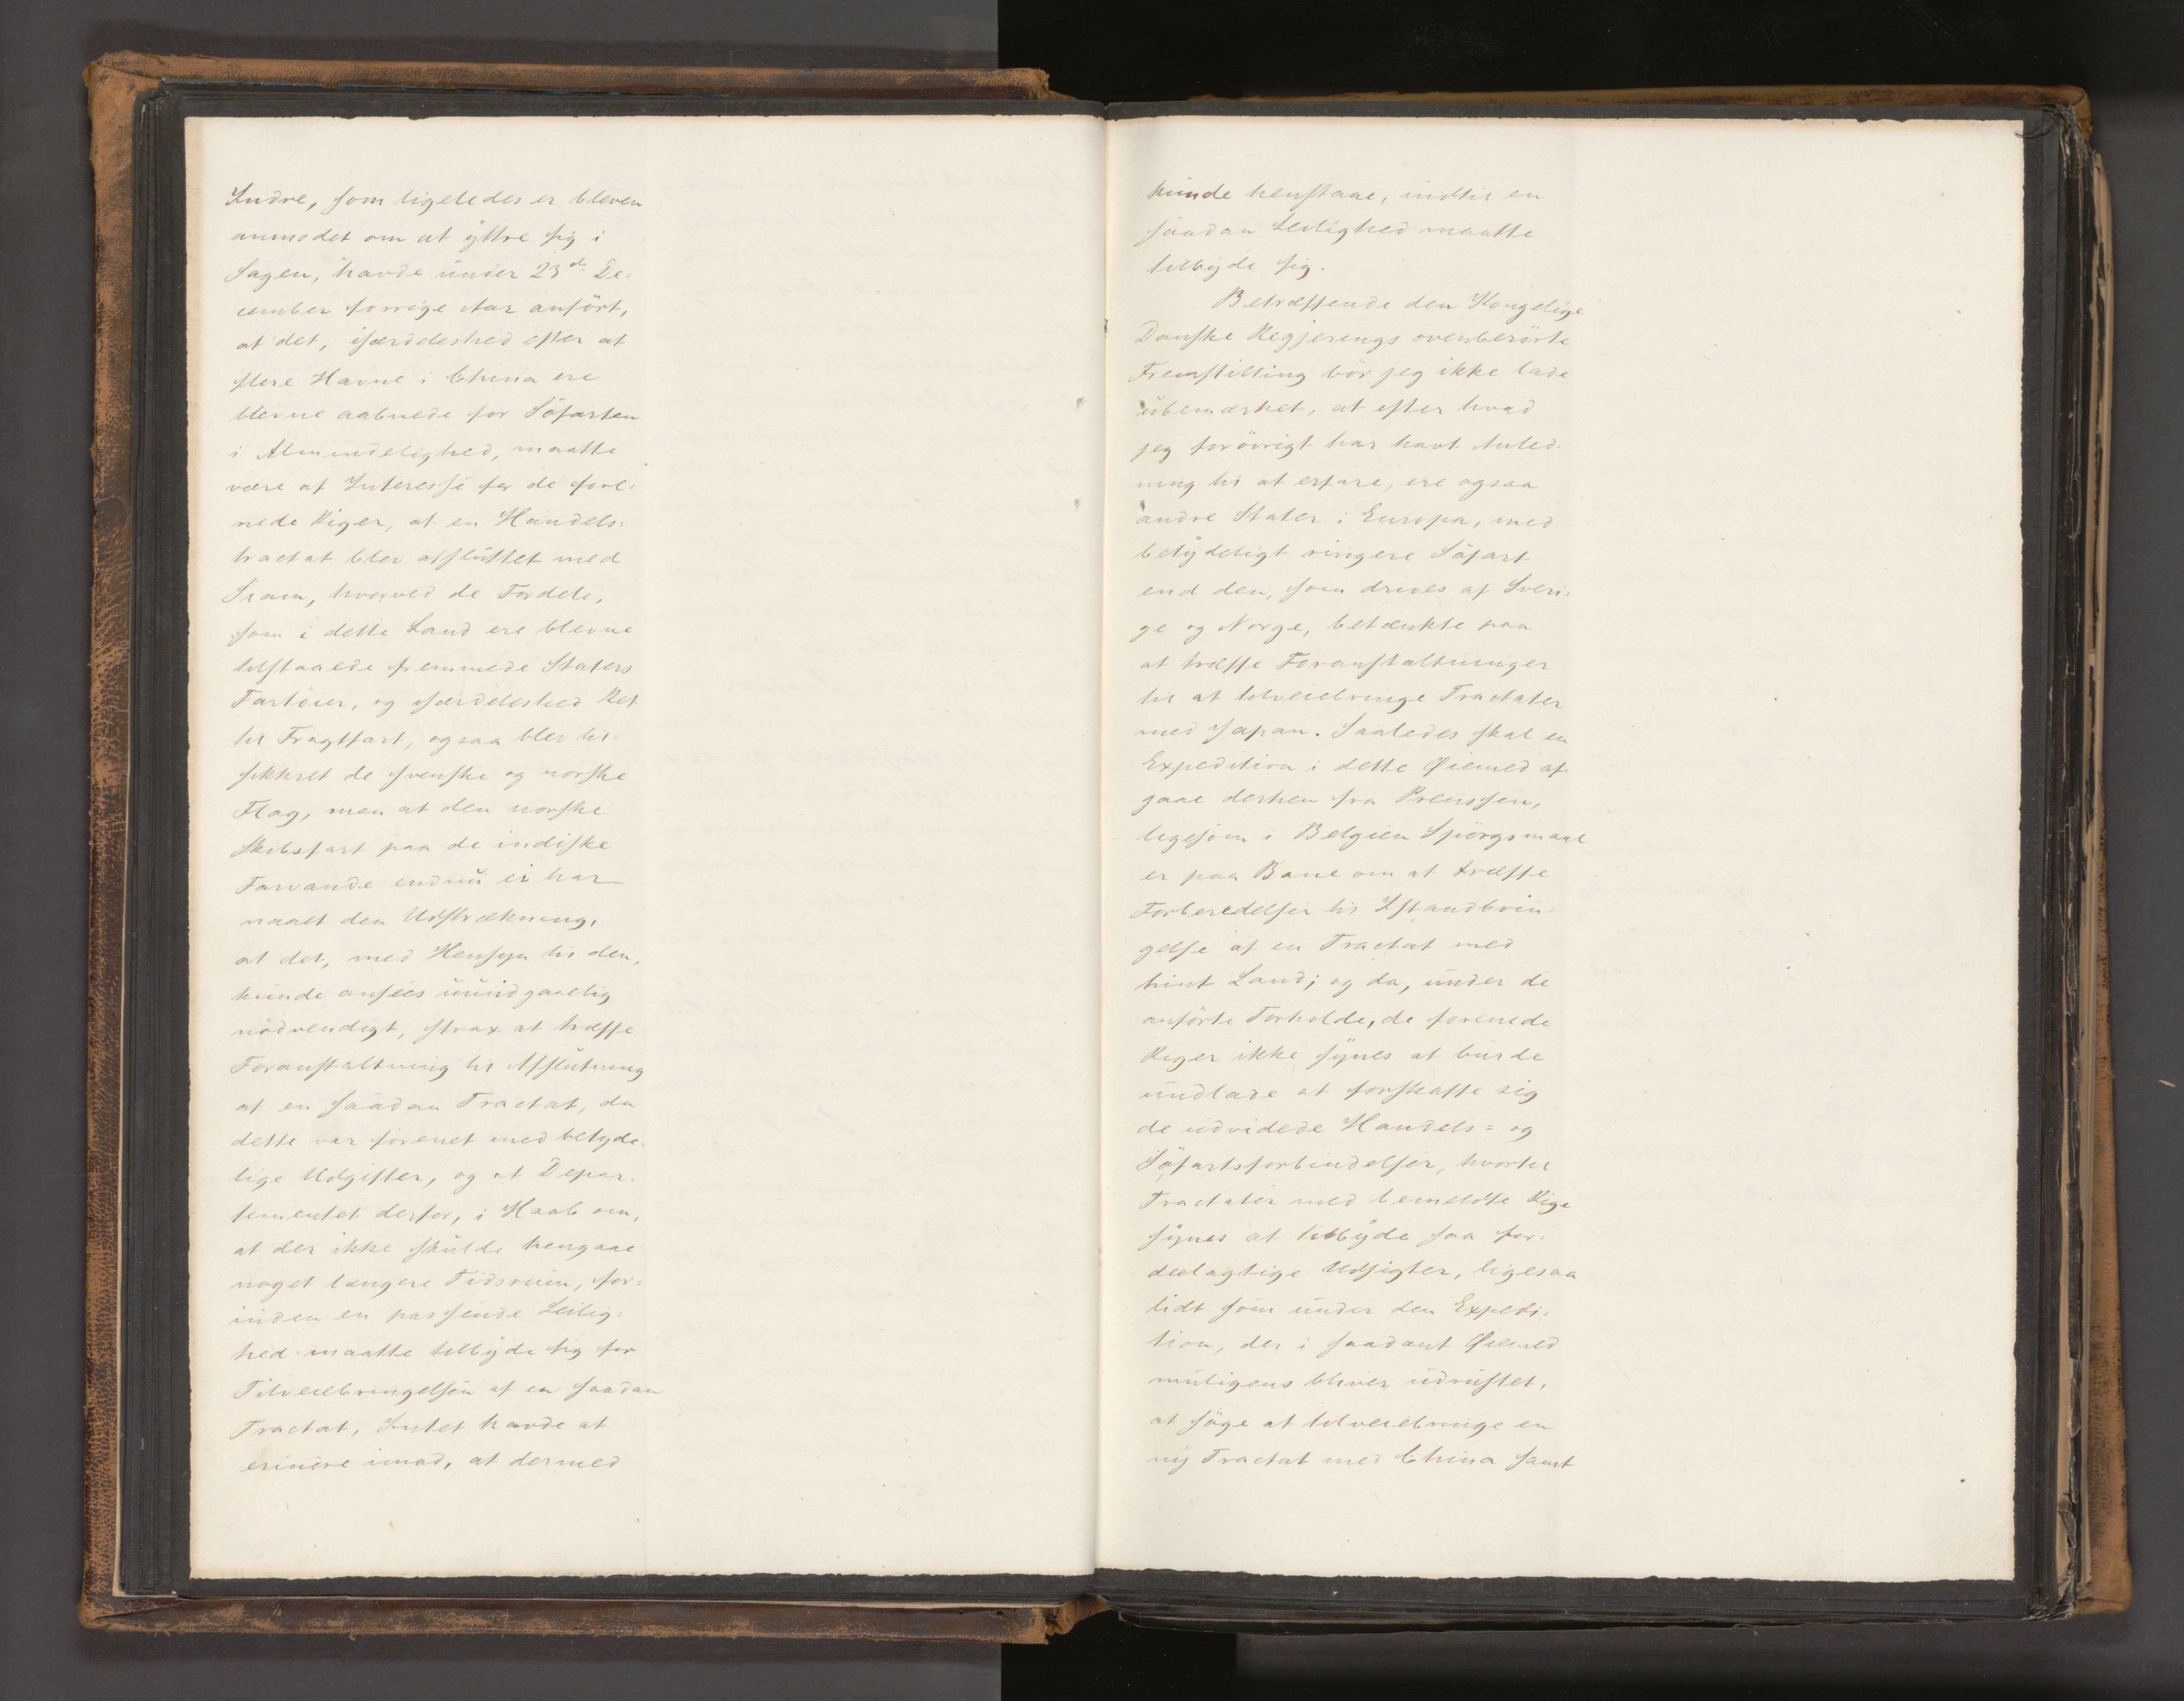 Indre, som ligeledes er bleven
anmodet om at yttre sig i
Sagen, havde under 23de De=
cember forrige Aar anfört,
at det, isærdeleshed efter at
flere Havne i China ere
blevne aabnede for Söfarten
i Almindelighed, maatte
være af Interesse for de fore=
nede Riger, at en Handels=
tractat blev afsluttet med
Siam, hvorved de Fordele,
som i dette Land ere blevne
tilstaaede fremmede Staters
Fartöier, og særdeleshed Ret
til Fragtfart, ogsaa blev til=
sikkret de svenske og norske
Flag, men at den norske
Skibsfart paa de indiske
Farvande endnu ei har
naaet den Udstrækning,
at det, med Hensyn til den,
kunde ansees uundgaaelig
nödvendigt, strax at træffe
Foranstaltning til Afslutning
af en saadan Tractat, da
dette var forenet med betyde=
lige Udgifter, og at Depar=
tementet derfor, i Haab om,
at der ikke skulde hengaae
noget længere Tidsrum, for=
inden en passende Leilig=
hed maatte tilbyde sig for
Tilveiebringelsen af en saadan
Tractat, Intet havde at
erindre imod, at dermed
kunde henstaae, indtil en
saadan Leilighed maatte
tilbyde sig.
Betræffende den Kongelige
Danske Regjerings ovenberörte
Fremstilling bör jeg ikke lade
ubemærket, at efter hvad
jeg forövrigt har havt Anled=
ning til at erfare, ere ogsaa
andre Stater i Europa, med
betydeligt ringere Söfart
end den, som drives af Sveri=
ge og Norge, betænkte paa
at træffe Foranstaltninger
til at tilveiebringe Tractater
med Japan. Saaledes skal en
Expedition i dette Øiemed af=
gaae derhen fra Preussen,
ligesom i Belgien Spörgsmaal
er paa Bane om at træffe
Forberedelser til Istandbrin=
gelse af en Tractat med
hint Land; og da, under de
anförte Forholde, de forenede
Riger ikke synes at burde
undlade at forskaffe sig
de udvidede Handels= og
Söfartsforbindelser, hvortil
Tractater med bemeldte Rige
synes at tilbyde saa for=
deelagtige Udsigter, ligesaa
lidt som under den Expedi=
tion, der i saadant Øiemed
muligens bliver udrustet,
at söge at tilveiebringe en
ny Tractat med China samt